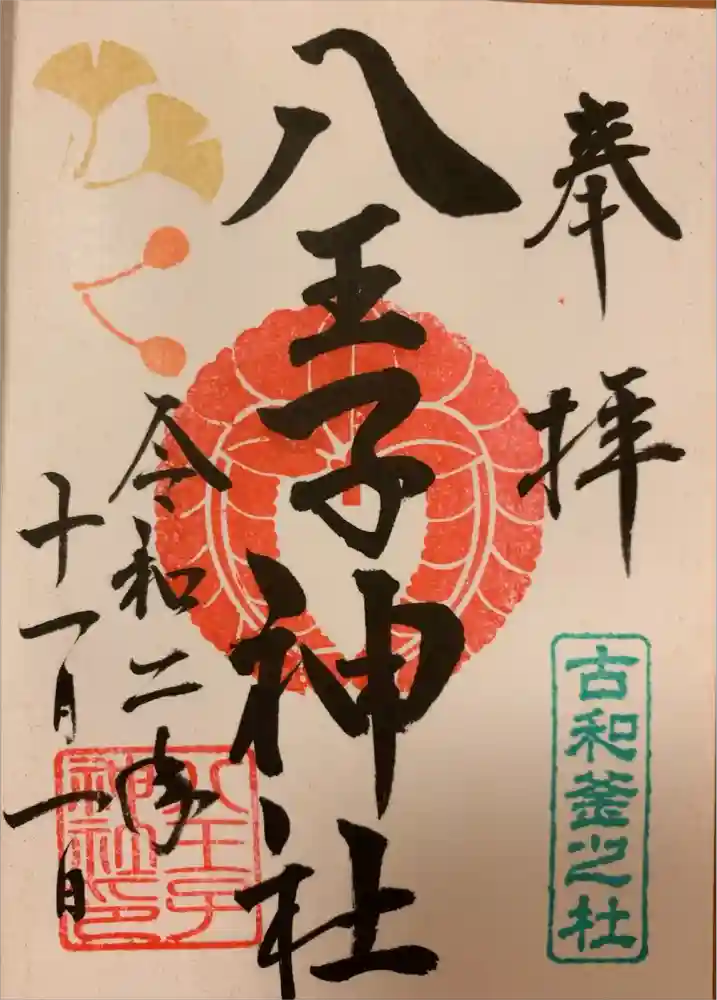 奉拝
古和釜之杜
八王子神社
令和二歳
十一月一日
八王子
神社印